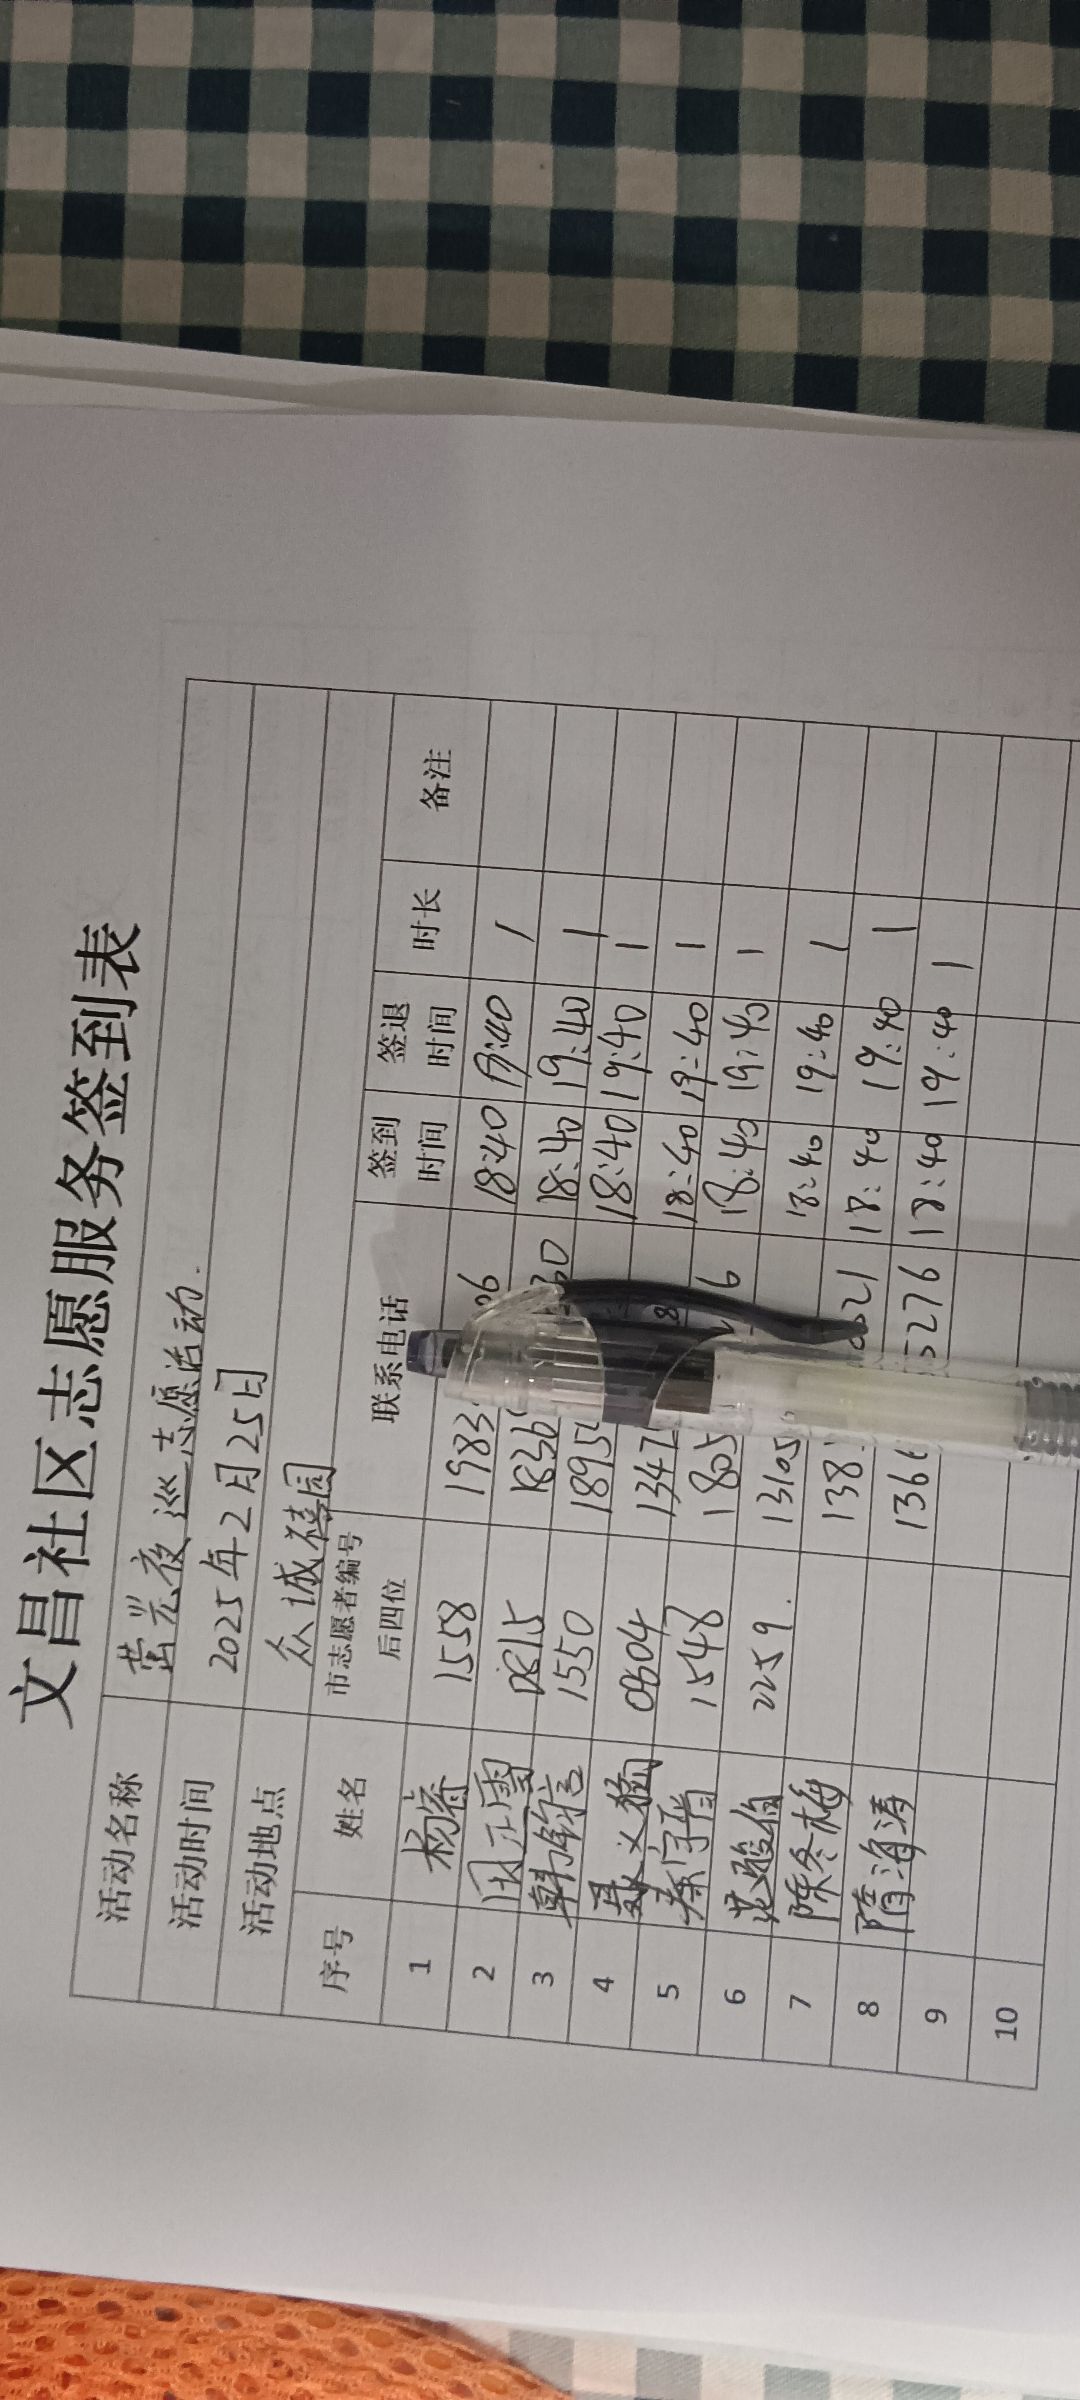 文昌社区志愿服务签到表
活动名称 萤光夜巡志愿活动.
活动时间 2025年2月25日
活动地点 众诚禧园
序号 姓名 市志愿者编号后四位 联系电话 签到时间 签退时间 时长 备注
1 杨睿 1558 1983 06 18:40 19:40 1
2 周正雷 0815 1836 30 18:40 19:40 1
3 1550 1895 18:40 19:40 1
4 聂义 0604 1347 8 18:40 19:40 1
5 秦宇 1548 1805 6 18:40 19:40 1
6 范骏伯 2259. 13105 18:40 19:40 1
7 陈冬梅 138 321 18:40 19:40 1
8 隋海涛 136 5276 18:40 19:40 1
9
10